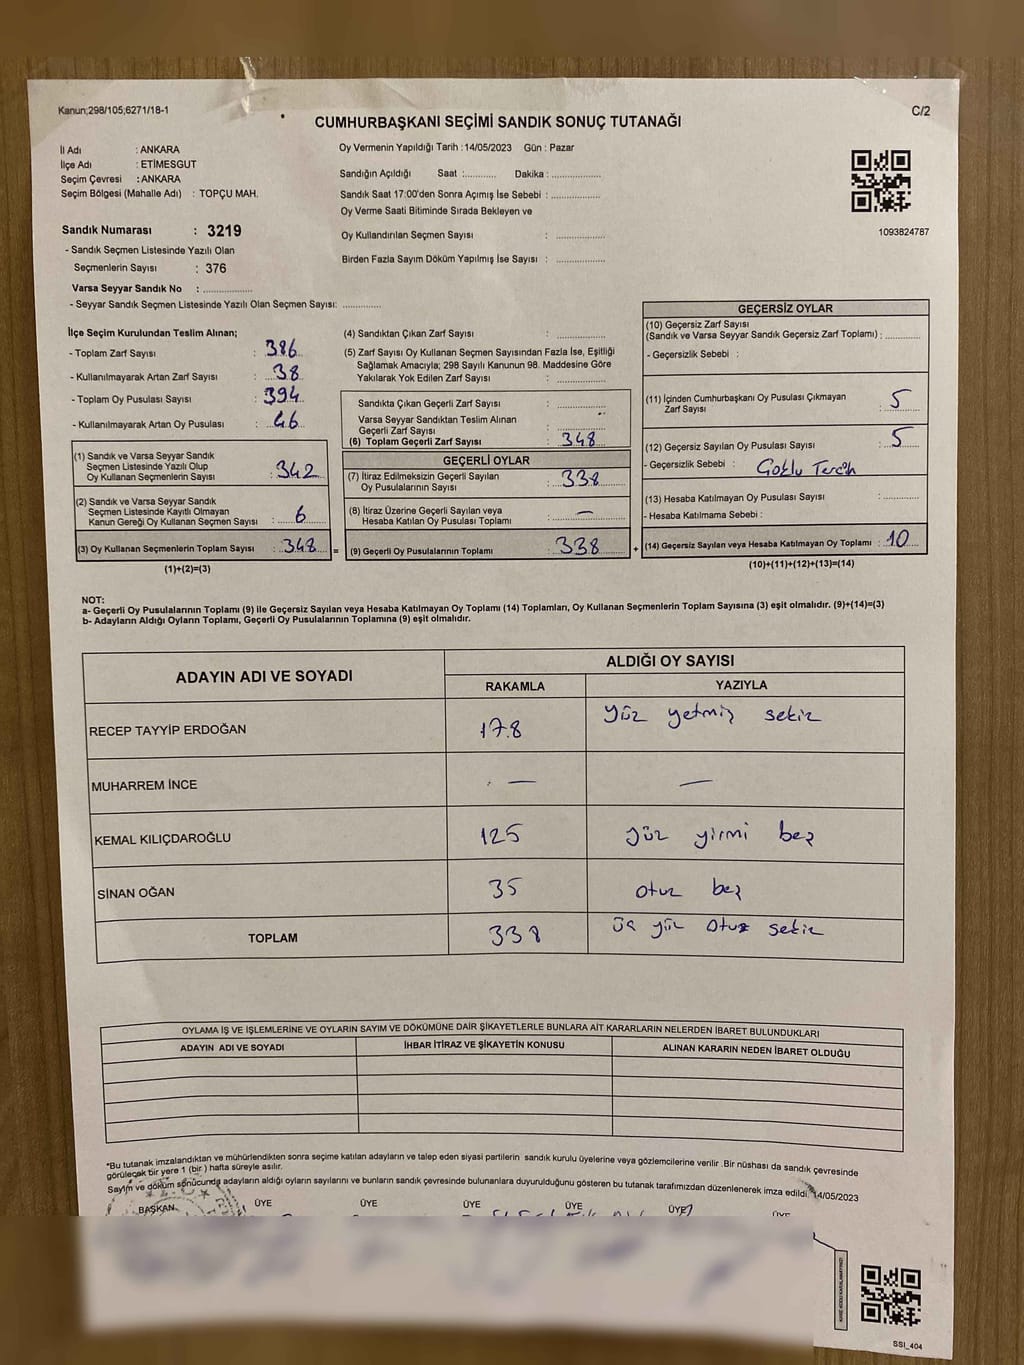 Kanun;298/105;6271/18-1
C/2
CUMHURBAŞKANI SEÇİMİ SANDIK SONUÇ TUTANAĞI
İl Adı : ANKARA
İlçe Adı : ETİMESGUT
Seçim Çevresi : ANKARA
Seçim Bölgesi (Mahalle Adı) : TOPÇU MAH.
Oy Vermenin Yapıldığı Tarih :14/05/2023 Gün : Pazar
Sandığın Açıldığı Saat :........... Dakika : ..................
Sandık Saat 17:00'den Sonra Açılmış İse Sebebi : ..................
Oy Verme Saati Bitiminde Sırada Bekleyen ve
Oy Kullandırılan Seçmen Sayısı : ..................
Birden Fazla Sayım Döküm Yapılmış İse Sayısı : ..................
1093824787
Sandık Numarası : 3219
- Sandık Seçmen Listesinde Yazılı Olan
Seçmenlerin Sayısı : 376
Varsa Seyyar Sandık No : ..................
- Seyyar Sandık Seçmen Listesinde Yazılı Olan Seçmen Sayısı: ..............
İlçe Seçim Kurulundan Teslim Alınan;
- Toplam Zarf Sayısı : 386
- Kullanılmayarak Artan Zarf Sayısı : 38
- Toplam Oy Pusulası Sayısı : 394
- Kullanılmayarak Artan Oy Pusulası : 46
(1) Sandık ve Varsa Seyyar Sandık
Seçmen Listesinde Yazılı Olup
Oy Kullanan Seçmenlerin Sayısı : 342
(2) Sandık ve Varsa Seyyar Sandık
Seçmen Listesinde Kayıtlı Olmayan
Kanun Gereği Oy Kullanan Seçmen Sayısı : 6
(3) Oy Kullanan Seçmenlerin Toplam Sayısı : 348 =
(1)+(2)=(3)
(4) Sandıktan Çıkan Zarf Sayısı : ..................
(5) Zarf Sayısı Oy Kullanan Seçmen Sayısından Fazla İse, Eşitliği
Sağlamak Amacıyla; 298 Sayılı Kanunun 98. Maddesine Göre
Yakılarak Yok Edilen Zarf Sayısı : ..................
Sandıkta Çıkan Geçerli Zarf Sayısı : ..................
Varsa Seyyar Sandıktan Teslim Alınan
Geçerli Zarf Sayısı : ..................
(6) Toplam Geçerli Zarf Sayısı : 348
GEÇERLİ OYLAR
(7) İtiraz Edilmeksizin Geçerli Sayılan
Oy Pusulalarının Sayısı : 338
(8) İtiraz Üzerine Geçerli Sayılan veya
Hesaba Katılan Oy Pusulası Toplamı : —
(9) Geçerli Oy Pusulalarının Toplamı : 338 +
GEÇERSİZ OYLAR
(10) Geçersiz Zarf Sayısı
(Sandık ve Varsa Seyyar Sandık Geçersiz Zarf Toplamı) : ............
- Geçersizlik Sebebi :
(11) İçinden Cumhurbaşkanı Oy Pusulası Çıkmayan
Zarf Sayısı : 5
(12) Geçersiz Sayılan Oy Pusulası Sayısı : 5
- Geçersizlik Sebebi : Çoklu Tercih
(13) Hesaba Katılmayan Oy Pusulası Sayısı : ............
- Hesaba Katılmama Sebebi :
(14) Geçersiz Sayılan veya Hesaba Katılmayan Oy Toplamı : 10
(10)+(11)+(12)+(13)=(14)
NOT:
a- Geçerli Oy Pusulalarının Toplamı (9) ile Geçersiz Sayılan veya Hesaba Katılmayan Oy Toplamı (14) Toplamları, Oy Kullanan Seçmenlerin Toplam Sayısına (3) eşit olmalıdır. (9)+(14)=(3)
b- Adayların Aldığı Oyların Toplamı, Geçerli Oy Pusulalarının Toplamına (9) eşit olmalıdır.
ADAYIN ADI VE SOYADI
ALDIĞI OY SAYISI
RAKAMLA YAZIYLA
RECEP TAYYİP ERDOĞAN 178 yüz yetmiş sekiz
MUHARREM İNCE — —
KEMAL KILIÇDAROĞLU 125 yüz yirmi beş
SİNAN OĞAN 35 otuz beş
TOPLAM 338 üç yüz otuz sekiz
OYLAMA İŞ VE İŞLEMLERİNE VE OYLARIN SAYIM VE DÖKÜMÜNE DAİR ŞİKAYETLERLE BUNLARA AİT KARARLARIN NELERDEN İBARET BULUNDUKLARI
ADAYIN ADI VE SOYADI İHBAR İTİRAZ VE ŞİKAYETİN KONUSU ALINAN KARARIN NEDEN İBARET OLDUĞU
*Bu tutanak imzalandıktan ve mühürlendikten sonra seçime katılan adayların ve talep eden siyasi partilerin sandık kurulu üyelerine veya gözlemcilerine verilir .Bir nüshası da sandık çevresinde
görülecek bir yere 1 (bir ) hafta süreyle asılır.
Sayım ve döküm sonucunda adayların aldığı oyların sayılarını ve bunların sandık çevresinde bulunanlara duyurulduğunu gösteren bu tutanak tarafımızdan düzenlenerek imza edildi. 14/05/2023
BAŞKAN ÜYE ÜYE ÜYE ÜYE ÜYE ÜYE
SSI_404